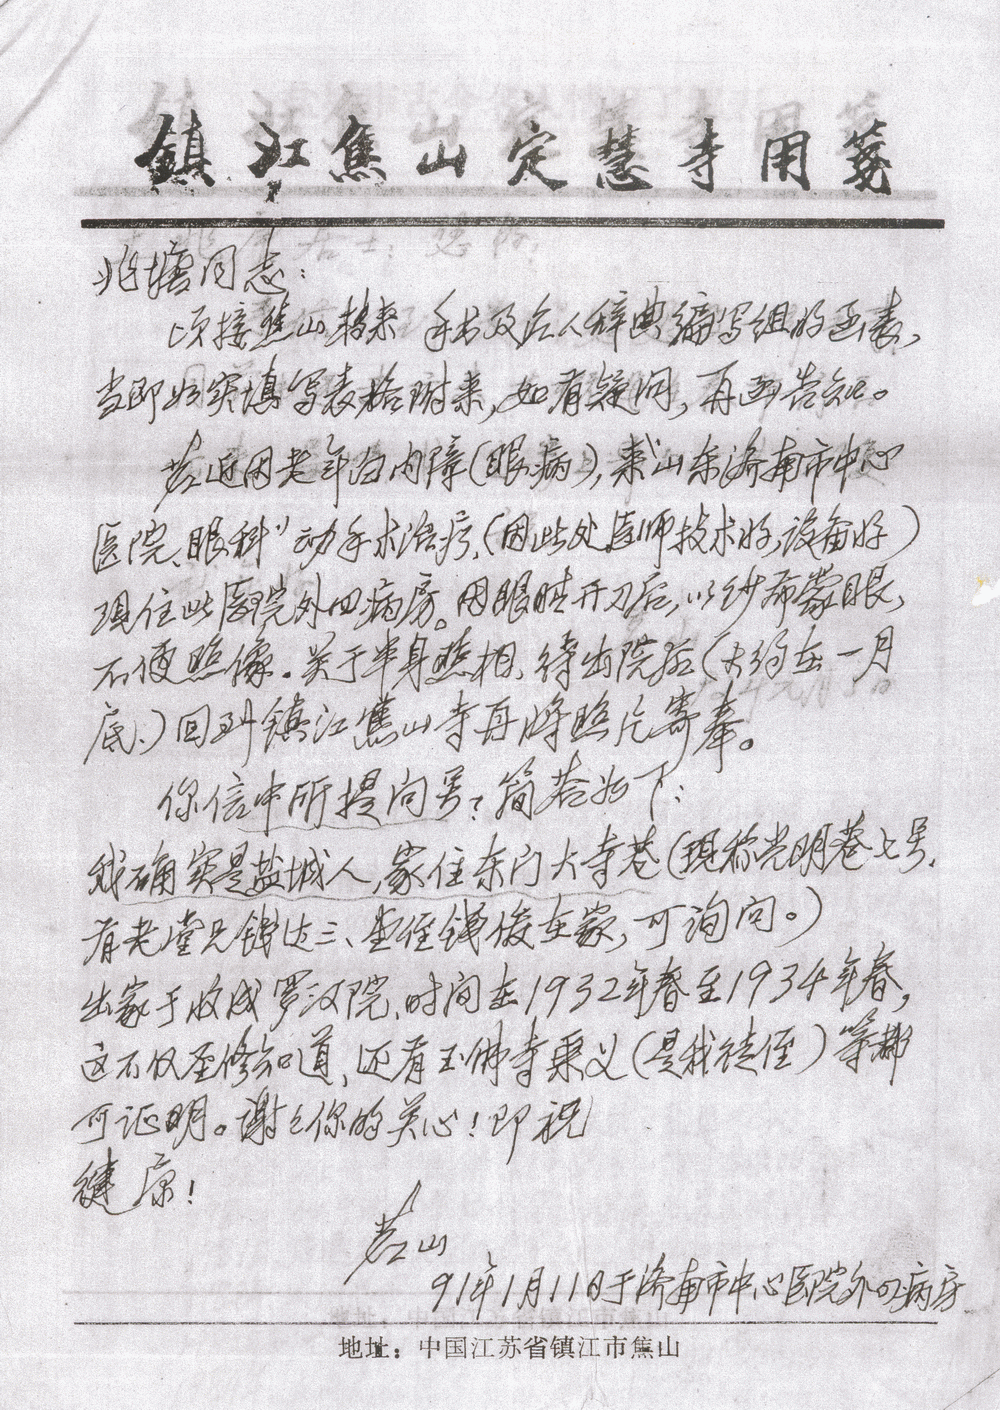 鎮江焦山定慧寺用笺
兆塘同志：
顷接焦山转来 手书及名人辞典编写组的函表，
当即如实填写表格附来，如有疑问，再函告知。
茗近因老年白内障（眼病），来“山东济南市中心
医院、眼科”动手术治疗，（因此处医师技术好，设备好）
现住此医院外四病房。因眼睛开刀后，以纱布蒙眼，
不便照像。关于半身照相，待出院后（大约在一月
底）回到镇江焦山寺再将照片寄奉。
你信中所提问号？简答如下：
我确实是盐城人，家住东门大寺巷（现称光明巷七号，
有老堂兄钱达三、堂侄钱俊在家，可询问。）
出家于收成罗汉院，时间在1932年春至1934年春，
这不仅圣修知道，还有玉佛寺乘义（是我徒侄）等都
可证明。谢谢你的关心！即祝
健康！
茗山
91年1月11日于济南市中心医院外四病房
地址：中国江苏省镇江市焦山